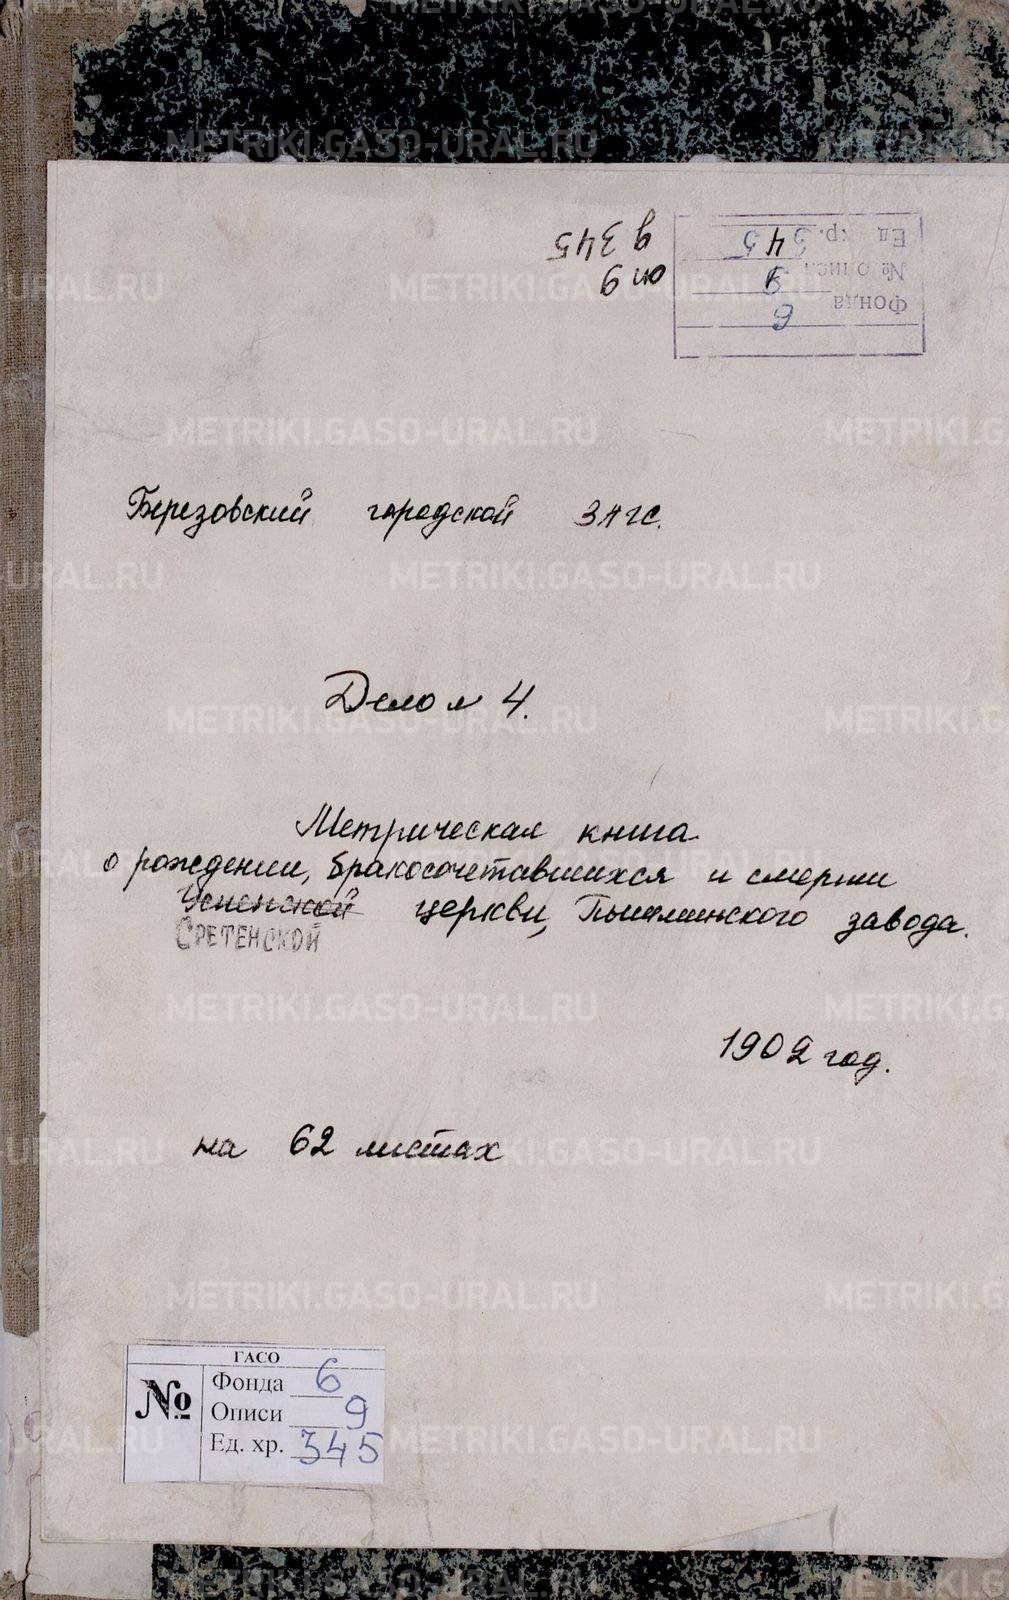 оп 9
д 345
Фонда 6
№ описи 9
Ед. хр. 345
Березовский городской ЗАГС.
Дело № 4.
Метрическая книга
о рождении, бракосочетавшихся и смерти
Успенской церкви, Пышминского завода.
СРЕТЕНСКОЙ
1902 год.
на 62 листах
ГАСО
№
Фонда 6
Описи 9
Ед. хр. 345
METRIKI.GASO-URAL.RU